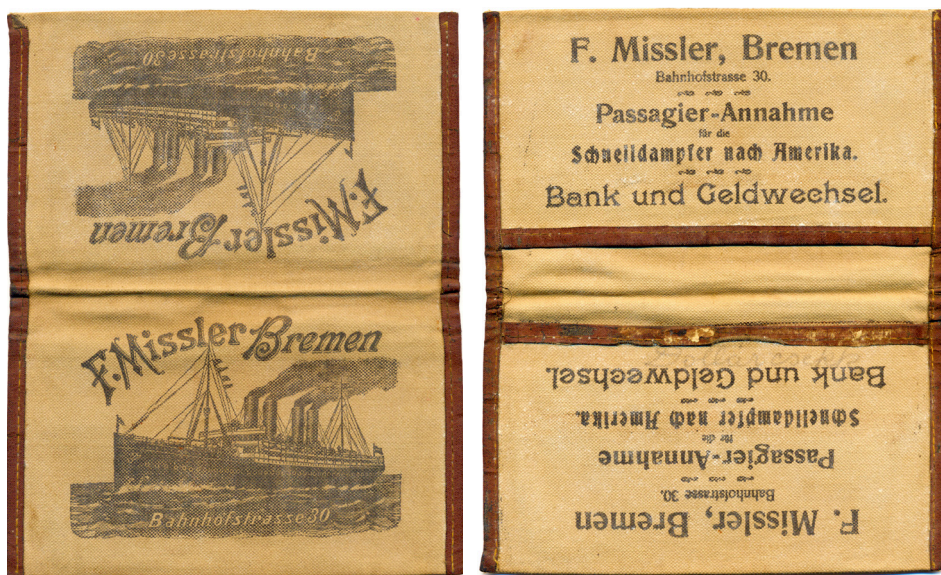 Bahnhofstrasse 30
F. Missler Bremen
F. Missler Bremen
Bahnhofstrasse 30
F. Missler, Bremen
Bahnhofstrasse 30.
Passagier-Annahme
für die
Schnelldampfer nach Amerika.
Bank und Geldwechsel.
Bank und Geldwechsel.
Schnelldampfer nach Amerika.
für die
Passagier-Annahme
Bahnhofstrasse 30.
F. Missler, Bremen